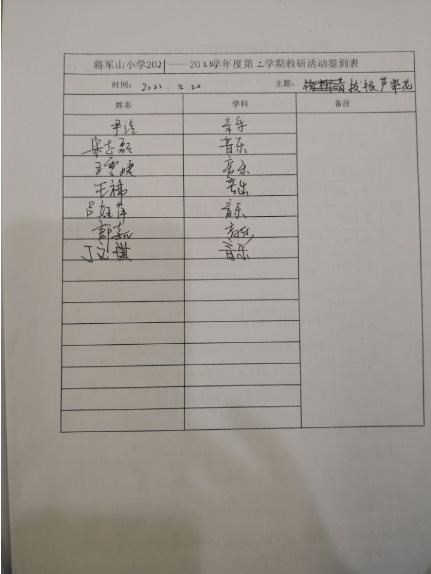 将军山小学2021——2022学年度第二学期教研活动签到表
时间: 2022.5.20 主题: 拔根芦柴花
姓名 学科 备注
尹洁 音乐
宋志磊 音乐
王雪婕 音乐
王祎 音乐
吕 萍 音乐
音乐
丁 音乐